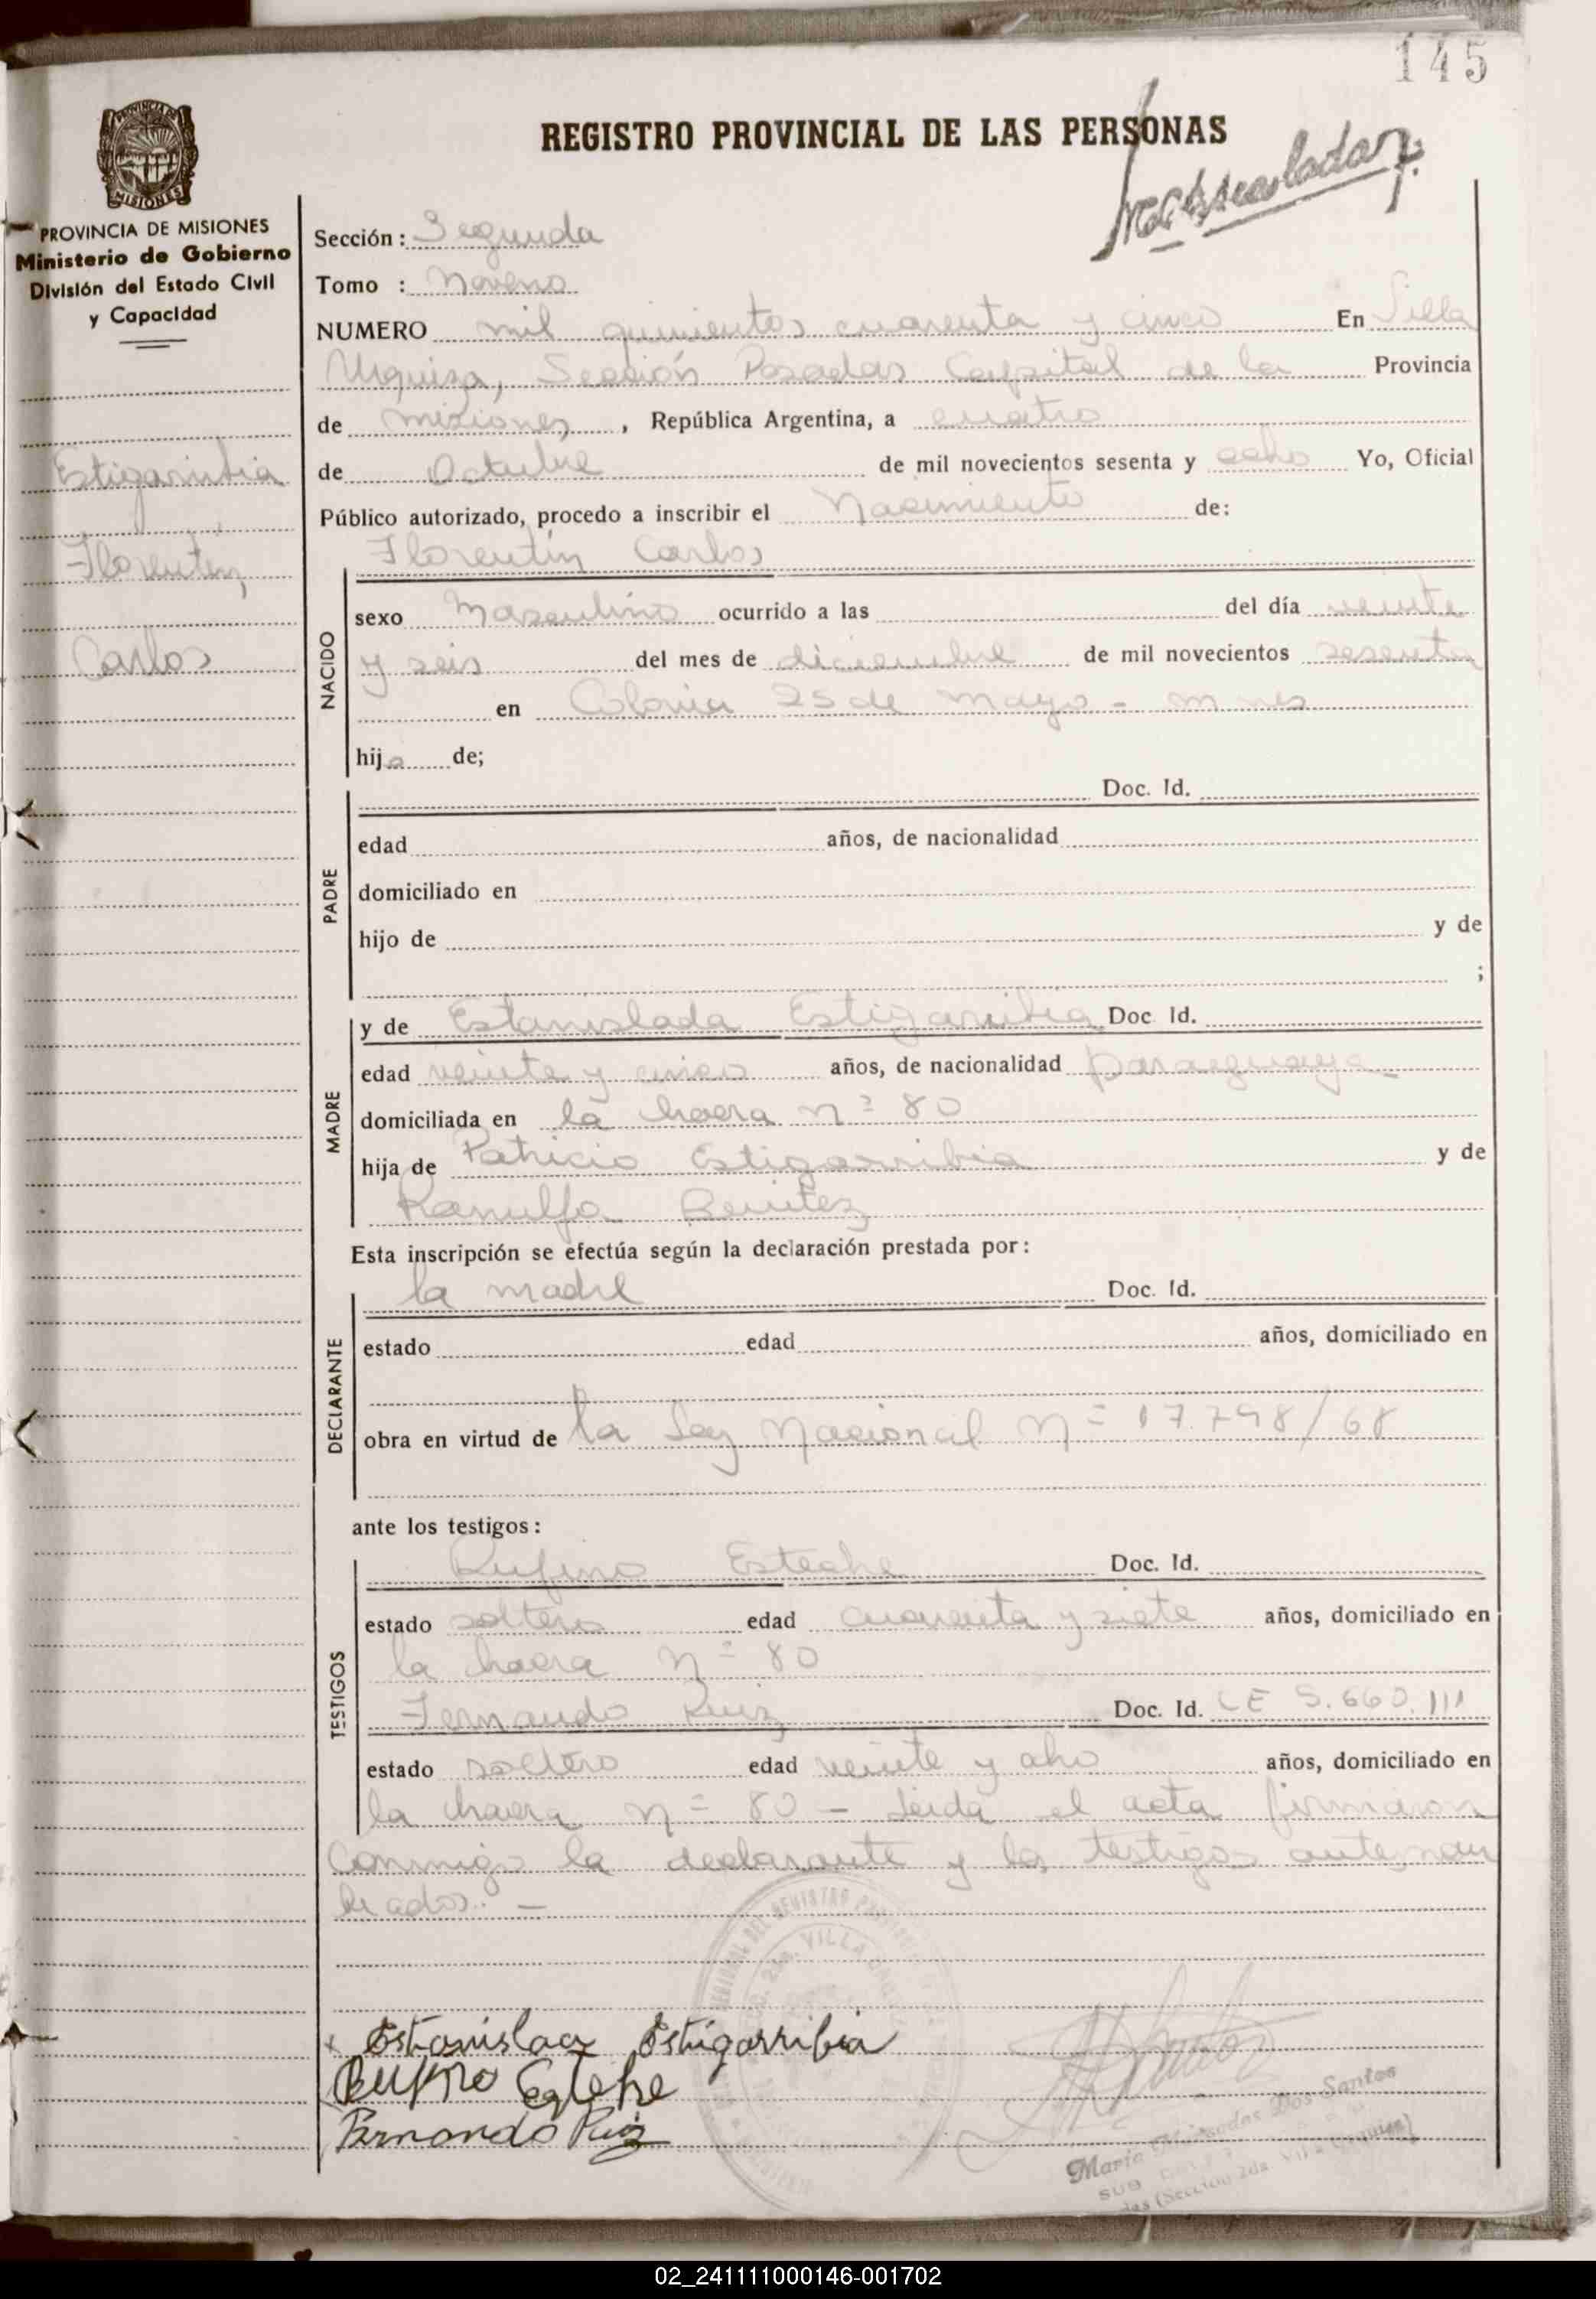 145
REGISTRO PROVINCIAL DE LAS PERSONAS
PROVINCIA DE MISIONES
MISIONES
PROVINCIA DE MISIONES
Ministerio de Gobierno
División del Estado Civil
y Capacidad
Estigarribia
Florentín,
Carlos
Sección: Segunda
Tomo : Noveno
NUMERO mil quinientos cuarenta y cinco En Villa
Urquiza, Sección Posadas Capital de la Provincia
de Misiones, , República Argentina, a cuatro
de Octubre de mil novecientos sesenta y ocho Yo, Oficial
Público autorizado, procedo a inscribir el Nacimiento de:
Florentín Carlos
NACIDO
sexo Masculino ocurrido a las del día veinte
y seis del mes de diciembre de mil novecientos sesenta
en Colonia 25 de Mayo - Mnes
hijo de;
PADRE
Doc. Id.
edad años, de nacionalidad
domiciliado en
hijo de y de
;
MADRE
y de Estanislada Estigarribia Doc Id.
edad veinte y cinco años, de nacionalidad paraguaya
domiciliada en la chacra nº 80
hija de Patricio Estigarribia y de
Ranulfa Benitez
Esta inscripción se efectúa según la declaración prestada por:
DECLARANTE
la madre Doc. Id.
estado edad años, domiciliado en
obra en virtud de la Ley Nacional Nº 17.798/68
ante los testigos:
TESTIGOS
Rufino Esteche Doc. Id.
estado soltero edad cuarenta y siete años, domiciliado en
la chacra nº 80
Fernando Ruiz Doc. Id. CE 5.660.111
estado soltero edad veinte y ocho años, domiciliado en
la chacra nº 80 - Leida el acta firmaron
conmigo la declarante y los testigos antenom
brados. -
x Estanislaa Estigarribia
Rufino Esteche
Fernando Ruiz
VILLA
María Dos Santos
SUB
(Sección 2da Villa Urquiza)
02_241111000146-001702